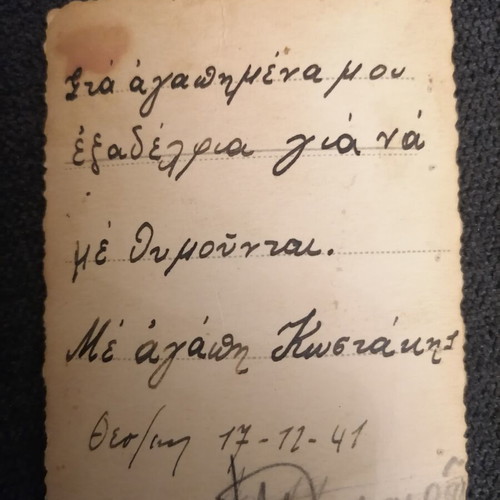 Στά ἀγαπημένα μου
ἐξαδέλφια γιά νά
μέ θυμοῦνται.
Μέ ἀγάπη Κωστάκης
Θεσ/νη 17-11-41